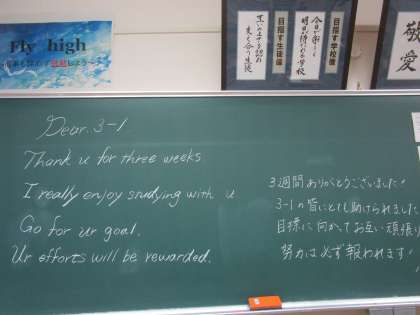 Fly high
目指す生徒像
目指す学校像
今日が楽しく
明日が待たれる学校
敬
愛
Dear. 3-1
Thank u for three weeks
I really enjoy studying with u
Go for ur goal.
Ur efforts will be rewarded.
3週間ありがとうございました!
3-1の皆にとても助けられました
目標に向かってお互い頑張り
努力は必ず報われます!